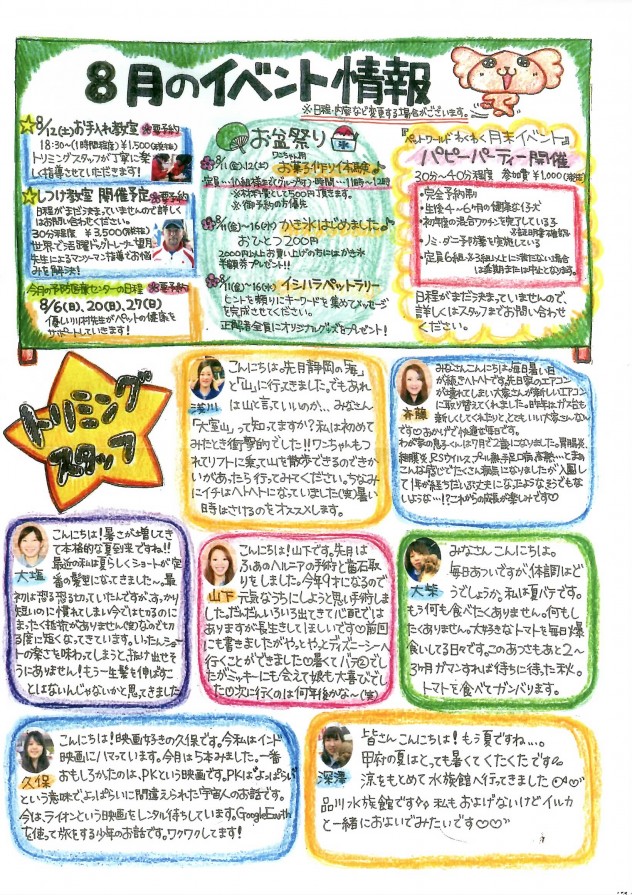 8月のイベント情報
※日程・内容など変更する場合がございます。
8/12(土)お手入れ教室 要予約
18:30~(1時間程度)¥1,500(税抜)
トリミングスタッフが丁寧に楽し
く指導させていただきます!
しつけ教室 開催予定 要予約
日程がまだ決まっていませんので詳しく
はお問い合わせください。
30分程度 ¥3,500(税抜)
世界で活躍ドッグトレーナー望月
先生によるマンツーマン指導でお悩
みを解決!
今月の予防医療センターの日程 要予約
8/6(日)、20(日)、27(日)
優しい川村先生がペットの健康を
サポートしていきます!
お盆祭り
氷
ワンちゃん用
8/11(金)・12(土) お菓子作り体験♪
定員…10組様まで(グループOK)・時間…11時~12時
※材料費として500円頂きます。
※御予約の方優先
8/11(金)~16(水) かき氷はじめました♪
おひとつ200円
2000円以上お買い上げの方にはかき氷
半額券プレゼント!!
8/11(金)~16(水) イシハラペットラリー
ヒントを頼りにキーワードを集めてメッセージ
を完成させてください。
正解者全員にオリジナルグッズをプレゼント!
『ペットワールドわくわく月末イベント』
パピーパーティー開催
30分~40分程度 参加費¥1,000(税抜)
・完全予約制
・生後4~6ヶ月の健康な仔犬
・初年度の混合ワクチンを完了している子
※証明書確認
・ノミ・ダニ予防薬を実施している
・定員6組 ※3組以上に満たない場合
は延期または中止となります。
日程がまだ決まっていませんので、
詳しくはスタッフまでお問い合わせ
ください。
トリミング
スタッフ
浅川
こんにちは。先日静岡の「海」
と「山」に行ってきました。でもあれ
は山と言っていいのか…。みなさん
「大室山」って知ってますか?私は初めて
みたとき衝撃的でした!!ワンちゃんもつ
れてリフトに乗って山を散歩できるのできか
いがあったら行ってみてください。ちなみ
にイチはヘトヘトになっていました(笑)暑い
日時はさけるのをオススメします。
斉藤
みなさんこんにちは。毎日暑い日
が続きヘトヘトです。先日家のエアコン
が壊れてしまい大家さんが新しいエアコン
に取り替えてくれました。昨年はガス台も
新しくしてくれたりと、とてもいい大家さんなん
です♡おかげで快適な毎日です。
わが家の息子くんは7月で2歳になりました。胃腸炎、
細膜炎、RSウイルス、プール熱、手足口病、高熱…とまあ
こんな感じでたくさん病気になりましたが、入園し
て1年が経ちだいぶ丈夫になったようなまだでもな
いような…!?これからの成長が楽しみです♡
大塩
こんにちは!暑さが増してき
て本格的な夏到来ですね!!
最近の私は夏らしくショートが定
番の髪型になってきました〜。最
初は恐る恐る切っていたんですが、すっかり
短いのに慣れてしまい今ではセカるのに
まったく抵抗がありません(笑)なので切
る度に短くなってきています。いったんショート
の楽さを味わってしまうと、抜け出せそ
うにありません!もう一生髪を伸ばすこ
とはないんじゃないかと思ってきました
山下
こんにちは!山下です。先月は
ふぁあのヘルニアの手術と歯石取
りをしました。今年9才になるので
元気なうちにしようと思い手術しま
した。だんだんいろいろ出てきて心配では
ありますが長生きしてほしいです♡前回
にも書きましたがやっとやっとディズニーシーへ
行くことができました♡暑くてバテ②でし
たがミッキーにも会えて娘も大喜びでし
た♡次に行くのは何年後かな~(笑)
大柴
みなさんこんにちは。
毎日あついですが、体調はど
うでしょうか。私は夏バテです。
もう何も食べたくありません。何もし
たくありません。大好きなトマトを毎日爆
食いしてる日々です。このあつさもあと2~
3ヶ月ガマンすれば待ちに待った秋。
トマトを食べてガンバリます。
久保
こんにちは!映画好きの久保です。今私はインド
映画にハマっています。今日は5本みました。一番
おもしろかったのは、PKという映画です。PKは“よっぱらい”
という意味で、よっぱらいに間違えられた宇宙人のお話です。
今は、ライオンという映画をレンタル待ちしています。GoogleEarth
を使って旅をする少年のお話です。ワクワクしてます!
深澤
皆さんこんにちは!もう夏ですね…。
甲府の夏はとっても暑くてくたくたです
涼をもとめて水族館へ行ってきました
品川水族館です 私もおよげないけどイルカ
と一緒におよいでみたいです♡♡